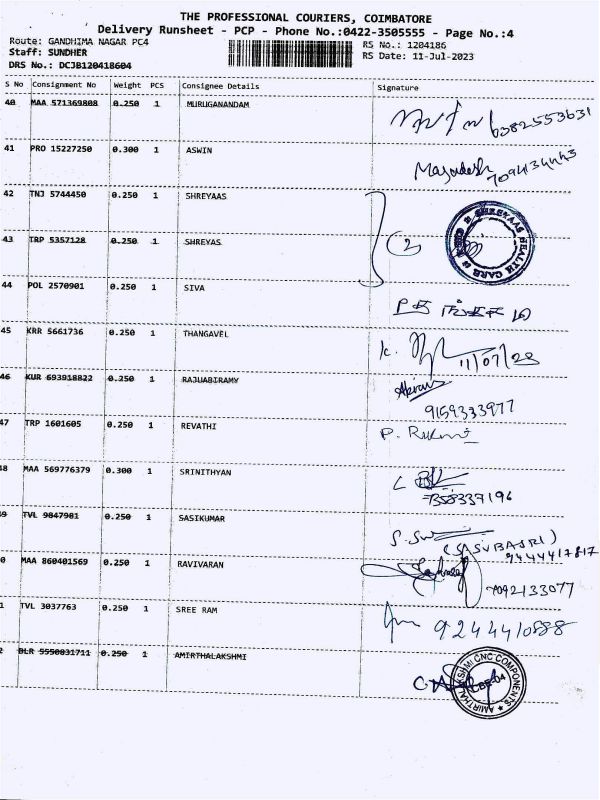 THE PROFESSIONAL COURIERS, COIMBATORE
Delivery Runsheet - PCP - Phone No.:0422-3505555 - Page No.:4
Route: GANDHIMA NAGAR PC4 RS No.: 1204186
Staff: SUNDHER RS Date: 11-Jul-2023
DRS No.: DCJB120418604
S No Consignment No Weight PCS Consignee Details Signature
40 MAA 571369808 0.250 1 MURUGANANDAM 6382553631
41 PRO 15227250 0.300 1 ASWIN 7094134443
42 TNJ 5744450 0.250 1 SHREYAAS
43 TRP 5357128 0.250 1 SHREYAS 2 SHREYAAS HEALTH CARE
44 POL 2570901 0.250 1 SIVA
45 KRR 5661736 0.250 1 THANGAVEL K. 11/07/23
46 KUR 693918822 0.250 1 RAJUABIRAMY 9159333977
47 TRP 1601605 0.250 1 REVATHI P.
48 MAA 569776379 0.300 1 SRINITHYAN 7358337196
9 TVL 9847981 0.250 1 SASIKUMAR S. (S.SUBASRI)
9444417817
0 MAA 860401569 0.250 1 RAVIVARAN 7092133077
1 TVL 3037763 0.250 1 SREE RAM 9244410888
2 BLR 5550831711 0.250 1 AMIRTHALAKSHMI AMIRTHALAKSHMI CNC COMPONENTS CBE-04